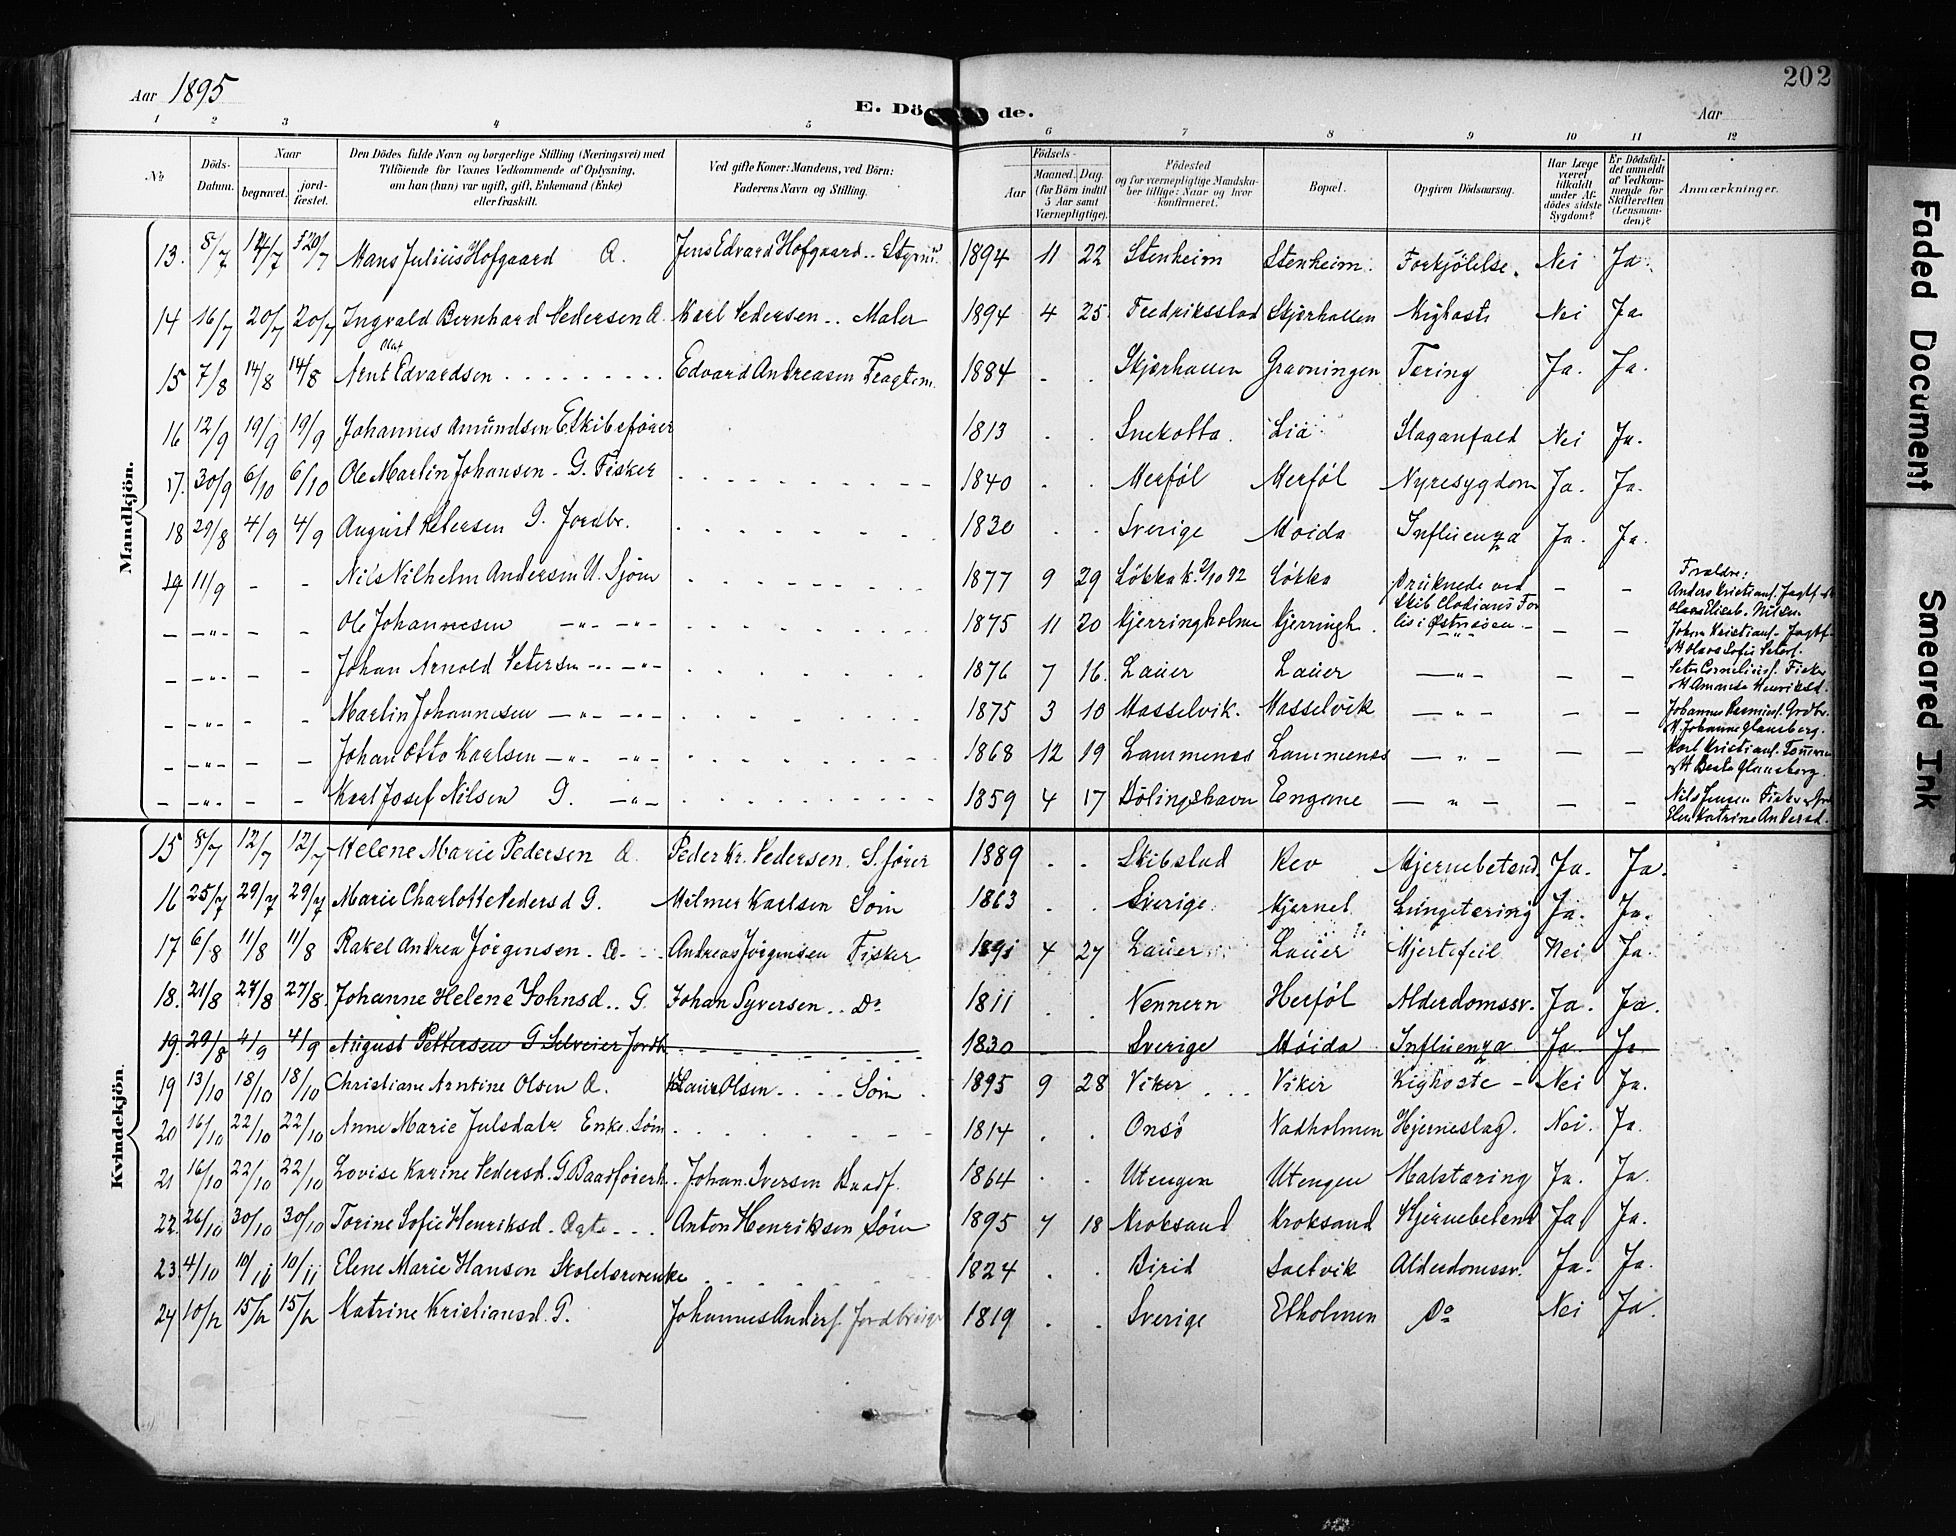 202
Aar 1895
E. Dö de.
Aar
1 2 3 4 5 6 7 8 9 10 11 12
No
Döds-Datum.
Naar
begravet.
jord-fæstet.
Den Dödes fulde Navn og borgerlige Stilling (Næringsvei) med
Tilföiende for Voxnes Vedkommende af Oplysning,
om han (hun) var ugift, gift, Enkemand (Enke)
eller fraskilt.
Ved gifte Koner: Mandens, ved Börn:
Faderens Navn og Stilling.
Födsels-
Aar
Maaned. Dag.
(for Börn indtil
5 Aar samt
Værnepligtige).
Födested
og for værnepligtige Mandska-
ber tillige: Naar og hvor
konfirmeret.
Bopæl.
Opgiven Dödsaarsag.
Har Læge
været
tilkaldt
under Af-
dödes sidste
Sygdom?
Er Dödsfal-
det anmeldt
af Vedkom-
mende for
Skifteretten
(Lensman-
den)?
Anmærkninger.
Mandkjön.
13. 8/7 14/7 20/7 Hans Julius Hofgaard Æ. Jens Edvard Hofgaard .. Styrm. 1894 11 22 Stenheim Stenheim. Forkjölelse. Nei Ja.
14 16/7 20/7 20/7 Ingvald Bernhard Pedersen Æ. Karl Pedersen .. Maler 1894 4 25 Fredriksstad Skjærhallen Kighoste Nei Ja
Olaf
15 7/8 14/8 14/8 Arnt Edvardsen Edvard Andreasen Fragtm. 1884 - - Skjærhallen Gravningen Tæring Ja. Ja.
16 12/9 19/9 19/9 Johannes Amundsen E skibsfører 1813 . . Snekotta. Lia Slaganfald Nei Ja.
17. 30/9 6/10 6/10 Ole Martin Johansen - G. Fisker 1840 . . Herføl Herføl Nyresygdom Ja. Ja.
18 29/8 4/9 4/9 August Petersen G. Jordbr. 1830 . . Sverige Hoida Influenza Ja. Ja.
19 11/9 - - Nils Vilhelm Andersen U. Sjøm 1877 9 29 Løkka k. 2/10 92 Løkka Druknede ved - -
Forældre:
Anders Kristians. Jagtf.
Skib Clodians For
lis i Østersøen
- -"- - - Ole Johannesen -"- -"- 1875 11 20 Kjerringholm Kjerringh. -"- - -
Johan Kristians. Jagtf.
- -"- - - Johan Arnold Petersen -"- -"- 1876 7 16. Lauer Lauer -"- - -
Peter Cornelius. Fisker
- -"- - - Martin Johannesen -"- -"- 1875 3 10 Hasselvik. Hasselvik -"- - -
- -"- - - Johan Otto Karlsen -"- -"- 1868 12 19 Lammenes Lammenes -"- - -
Karl Kristians.
- -"- - - Karl Josef Nilsen G. -"- 1859 4 17 Dølingshavn Engene -"- - -
Nils Jensen Fisker
Kvindekjön.
15 8/7 12/7 12/7 Helene Marie Pedersen Æ. Peder Kr. Pedersen. S. fører 1889 . . Skibstad Rev Hjernebetænd. Ja. Ja.
16 25/7 29/7 29/7 Marie Charlotte Pedersd G. Hilmer Karlsen Søm 1863 . . Sverige. Kjernel Lungetæring Ja. Ja.
17 6/8 11/8 11/8 Rakel Andrea Jörgensen. Æ. Andreas Jörgensen Fisker 1891 4 27 Lauer Lauer Hjertefeil Nei Ja.
18. 21/8 27/8 27/8. Johanne Helene Johnsd.. G. Johan Syversen .. Do 1811 . . Nennern Herføl Alderdomssv. Ja. Ja.
19. 29/8 4/9 4/9 August Pettersen G Selveier Jordb. 1830 - - Sverige Hoida Influenza Ja. Ja.
19 13/10 18/10 18/10 Christiane Arntine Olsen Æ. Olsen Søm 1895 9 28 Viker Viker Kighoste - Nei Ja.
20 16/10 22/10 22/10 Anne Marie Julsdatr Enke. Søm 1814 . . Onsø Vadholmen Hjerneslag. Nei. Ja.
21 16/10 22/10 22/10 Lovise Karine Pedersd. G. Baadførerh. Johan Iversen Baadf. 1864 . . Utengen Utengen Halstæring Ja. Ja.
22 26/10 30/10 30/10 Torine Sofie Henriksd. Ægte Anton Henriksen Søm 1895 7 18 Kroksand Kroksand Hjernebetend Ja. Ja.
23 4/10 10/11 10/11 Elene Marie Hansen Skolelærerenke 1824 . . Birid Saltvik Alderdomssv. Ja. Ja.
24 10/12 15/12 15/12 Katrine Kristiansd. G. Johannes Anders. Jordbruger 1819 . . Sverige Ekholmen Do Nei Ja.
Faded Document
Smeared Ink